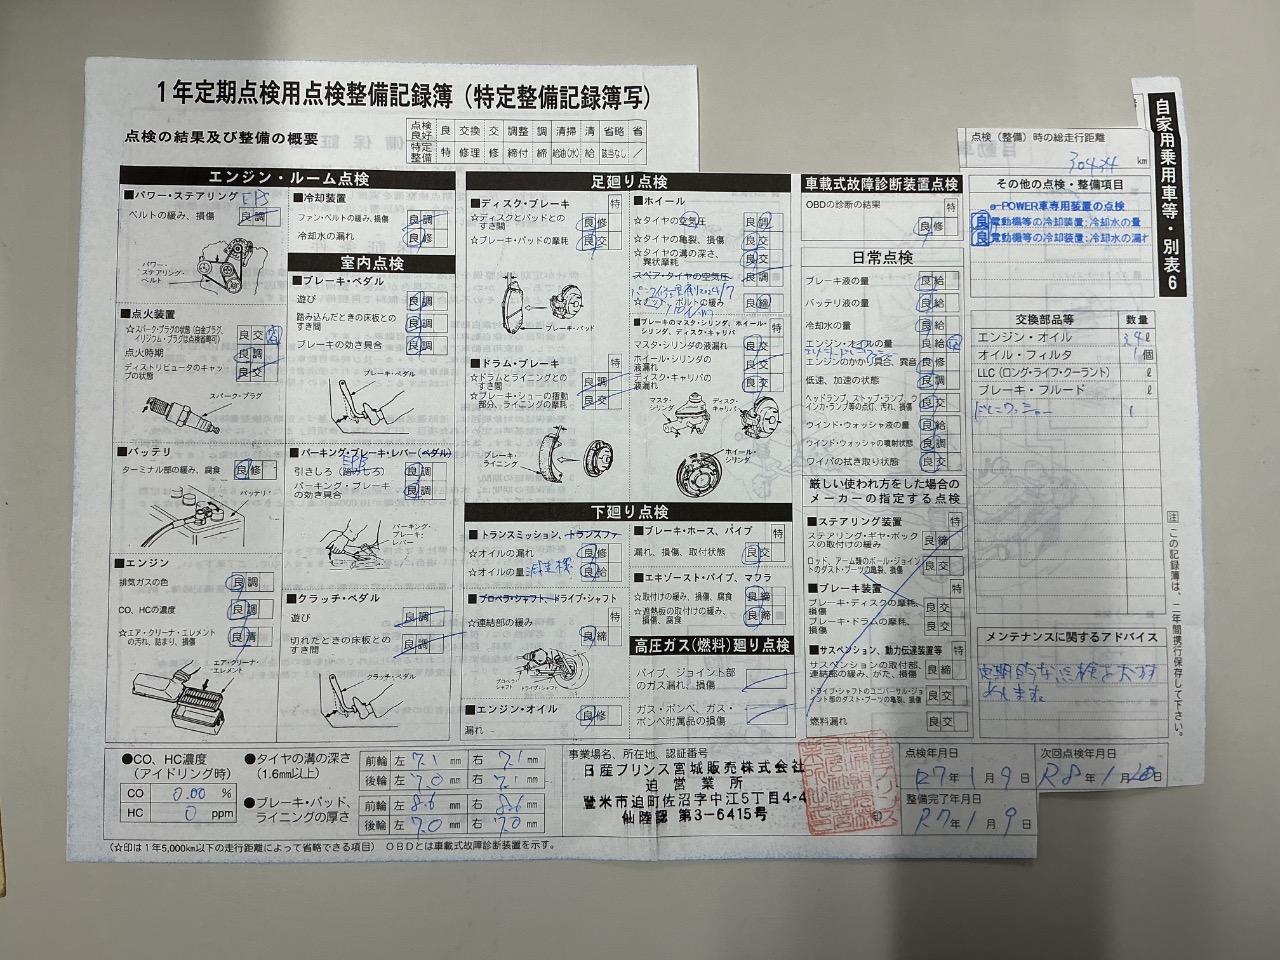 1年定期点検用点検整備記録簿（特定整備記録簿写）
点検の結果及び整備の概要
点検良好 良 交換 交 調整 調 清掃 清 省略 省
特定整備 特 修理 修 締付 締 給油(水) 給 該当なし ／
自家用乗用車等・別表6
点検（整備）時の総走行距離
30424 km
エンジン・ルーム点検
■パワー・ステアリング EPS
ベルトの緩み、損傷 良 調
パワー・ステアリング・ベルト
■点火装置
☆スパーク・プラグの状態（白金プラグ、イリジウム・プラグは点検省略可） 良 交
点火時期 良 調
ディストリビュータのキャップの状態 良 交
スパーク・プラグ
■バッテリ
ターミナル部の緩み、腐食 良 修
バッテリ・
■エンジン
排気ガスの色 良 調
CO、HCの濃度 良 調
☆エア・クリーナ・エレメントの汚れ、詰まり、損傷 良 清
エア・クリーナ・エレメント
■冷却装置
ファン・ベルトの緩み、損傷 良 調
冷却水の漏れ 良 修
室内点検
■ブレーキ・ペダル
遊び 良 調
踏み込んだときの床板とのすき間 良 調
ブレーキの効き具合 良 調
ブレーキ・ペダル
■パーキング・ブレーキ・レバー（ペダル）
引きしろ（踏みしろ） 良 調
パーキング・ブレーキの効き具合 良 調
パーキング・ブレーキ・レバー
■クラッチ・ペダル
遊び 良 調
切れたときの床板とのすき間 良 調
クラッチ・ペダル
足廻り点検
■ディスク・ブレーキ 特
☆ディスクとパッドとのすき間 良 修
☆ブレーキ・パッドの摩耗 良 交
ブレーキ・パッド
■ドラム・ブレーキ 特
☆ドラムとライニングとのすき間 良 調
☆ブレーキ・シューの摺動部分、ライニングの摩耗 良 交
ブレーキ・ライニング
■ホイール
☆タイヤの空気圧 良 調
☆タイヤの亀裂、損傷 良 交
☆タイヤの溝の深さ、異状摩耗 良 交
スペア・タイヤの空気圧 良 調
2024/7
☆ナット、ボルトの緩み 良 締
■ブレーキのマスタ・シリンダ、ホイール・シリンダ、ディスク・キャリパ 特
マスタ・シリンダの液漏れ 良 交
ホイール・シリンダの液漏れ 良 交
ディスク・キャリパの液漏れ 良 交
マスタ・シリンダ
ディスク・キャリパ
ホイール・シリンダ
下廻り点検
■トランスミッション、トランスファ
☆オイルの漏れ 良 修
☆オイルの量 減速機 良 給
■プロペラ・シャフト、ドライブ・シャフト
☆連結部の緩み 良 締
プロペラ・シャフト
ドライブ・シャフト
■エンジン・オイル
漏れ 良 修
■ブレーキ・ホース、パイプ 特
漏れ、損傷、取付状態 良 交
■エキゾースト・パイプ、マフラ
☆取付けの緩み、損傷、腐食 良 締
☆遮熱板の取付けの緩み、損傷、腐食 良 締
高圧ガス(燃料)廻り点検
パイプ、ジョイント部のガス漏れ、損傷
ガス・ボンベ、ガス・ボンベ附属品の損傷
車載式故障診断装置点検
OBDの診断の結果 特 良 修
日常点検
ブレーキ液の量 良 給
バッテリ液の量 良 給
冷却水の量 良 給
エンジン・オイルの量 良 給
エンジンのかかり具合、異音 良 修
低速、加速の状態 良 調
ヘッドランプ、ストップ・ランプ、ウインカ・ランプ等の点灯、汚れ、損傷 良 交
ウインド・ウォッシャ液の量 良 給
ウインド・ウォッシャの噴射状態 良 調
ワイパの拭き取り状態 良 交
厳しい使われ方をした場合のメーカーの指定する点検
■ステアリング装置 特
ステアリング・ギヤ・ボックスの取付けの緩み 良 締
ロッド、アーム類のボール・ジョイントのダスト・ブーツの亀裂、損傷 良 交
■ブレーキ装置 特
ブレーキ・ディスクの摩耗、損傷 良 交
ブレーキ・ドラムの摩耗、損傷 良 交
■サスペンション、動力伝達装置等 特
サスペンションの取付部、連結部の緩み、がた、損傷 良 締
ドライブ・シャフトのユニバーサル・ジョイント部のダスト・ブーツの亀裂、損傷 良 交
燃料漏れ 良 交
その他の点検・整備項目
e-POWER車専用装置の点検
良 電動機等の冷却装置:冷却水の量
良 電動機等の冷却装置:冷却水の漏れ
交換部品等 数量
エンジン・オイル 3.4 ℓ
オイル・フィルタ 1 個
LLC（ロング・ライフ・クーラント） ℓ
ブレーキ・フルード ℓ
ドレーンワッシャー 1
メンテナンスに関するアドバイス
定期的な点検をおすすめします。
注 この記録簿は、二年間携行保存して下さい。
●CO、HC濃度（アイドリング時）
CO 0.00 %
HC 0 ppm
●タイヤの溝の深さ（1.6mm以上）
前輪 左 7.1 mm 右 7.1 mm
後輪 左 7.0 mm 右 7.1 mm
●ブレーキ・パッド、ライニングの厚さ
前輪 左 8.6 mm 右 8.6 mm
後輪 左 7.0 mm 右 7.0 mm
事業場名、所在地、認証番号
日産プリンス宮城販売株式会社
迫営業所
登米市迫町佐沼字中江5丁目4-4
仙陸認 第3-6415号
印
点検年月日
R7年1月9日
次回点検年月日
R8年1月 日
整備完了年月日
R7年1月9日
（☆印は1年5,000km以下の走行距離によって省略できる項目） OBDとは車載式故障診断装置を示す。